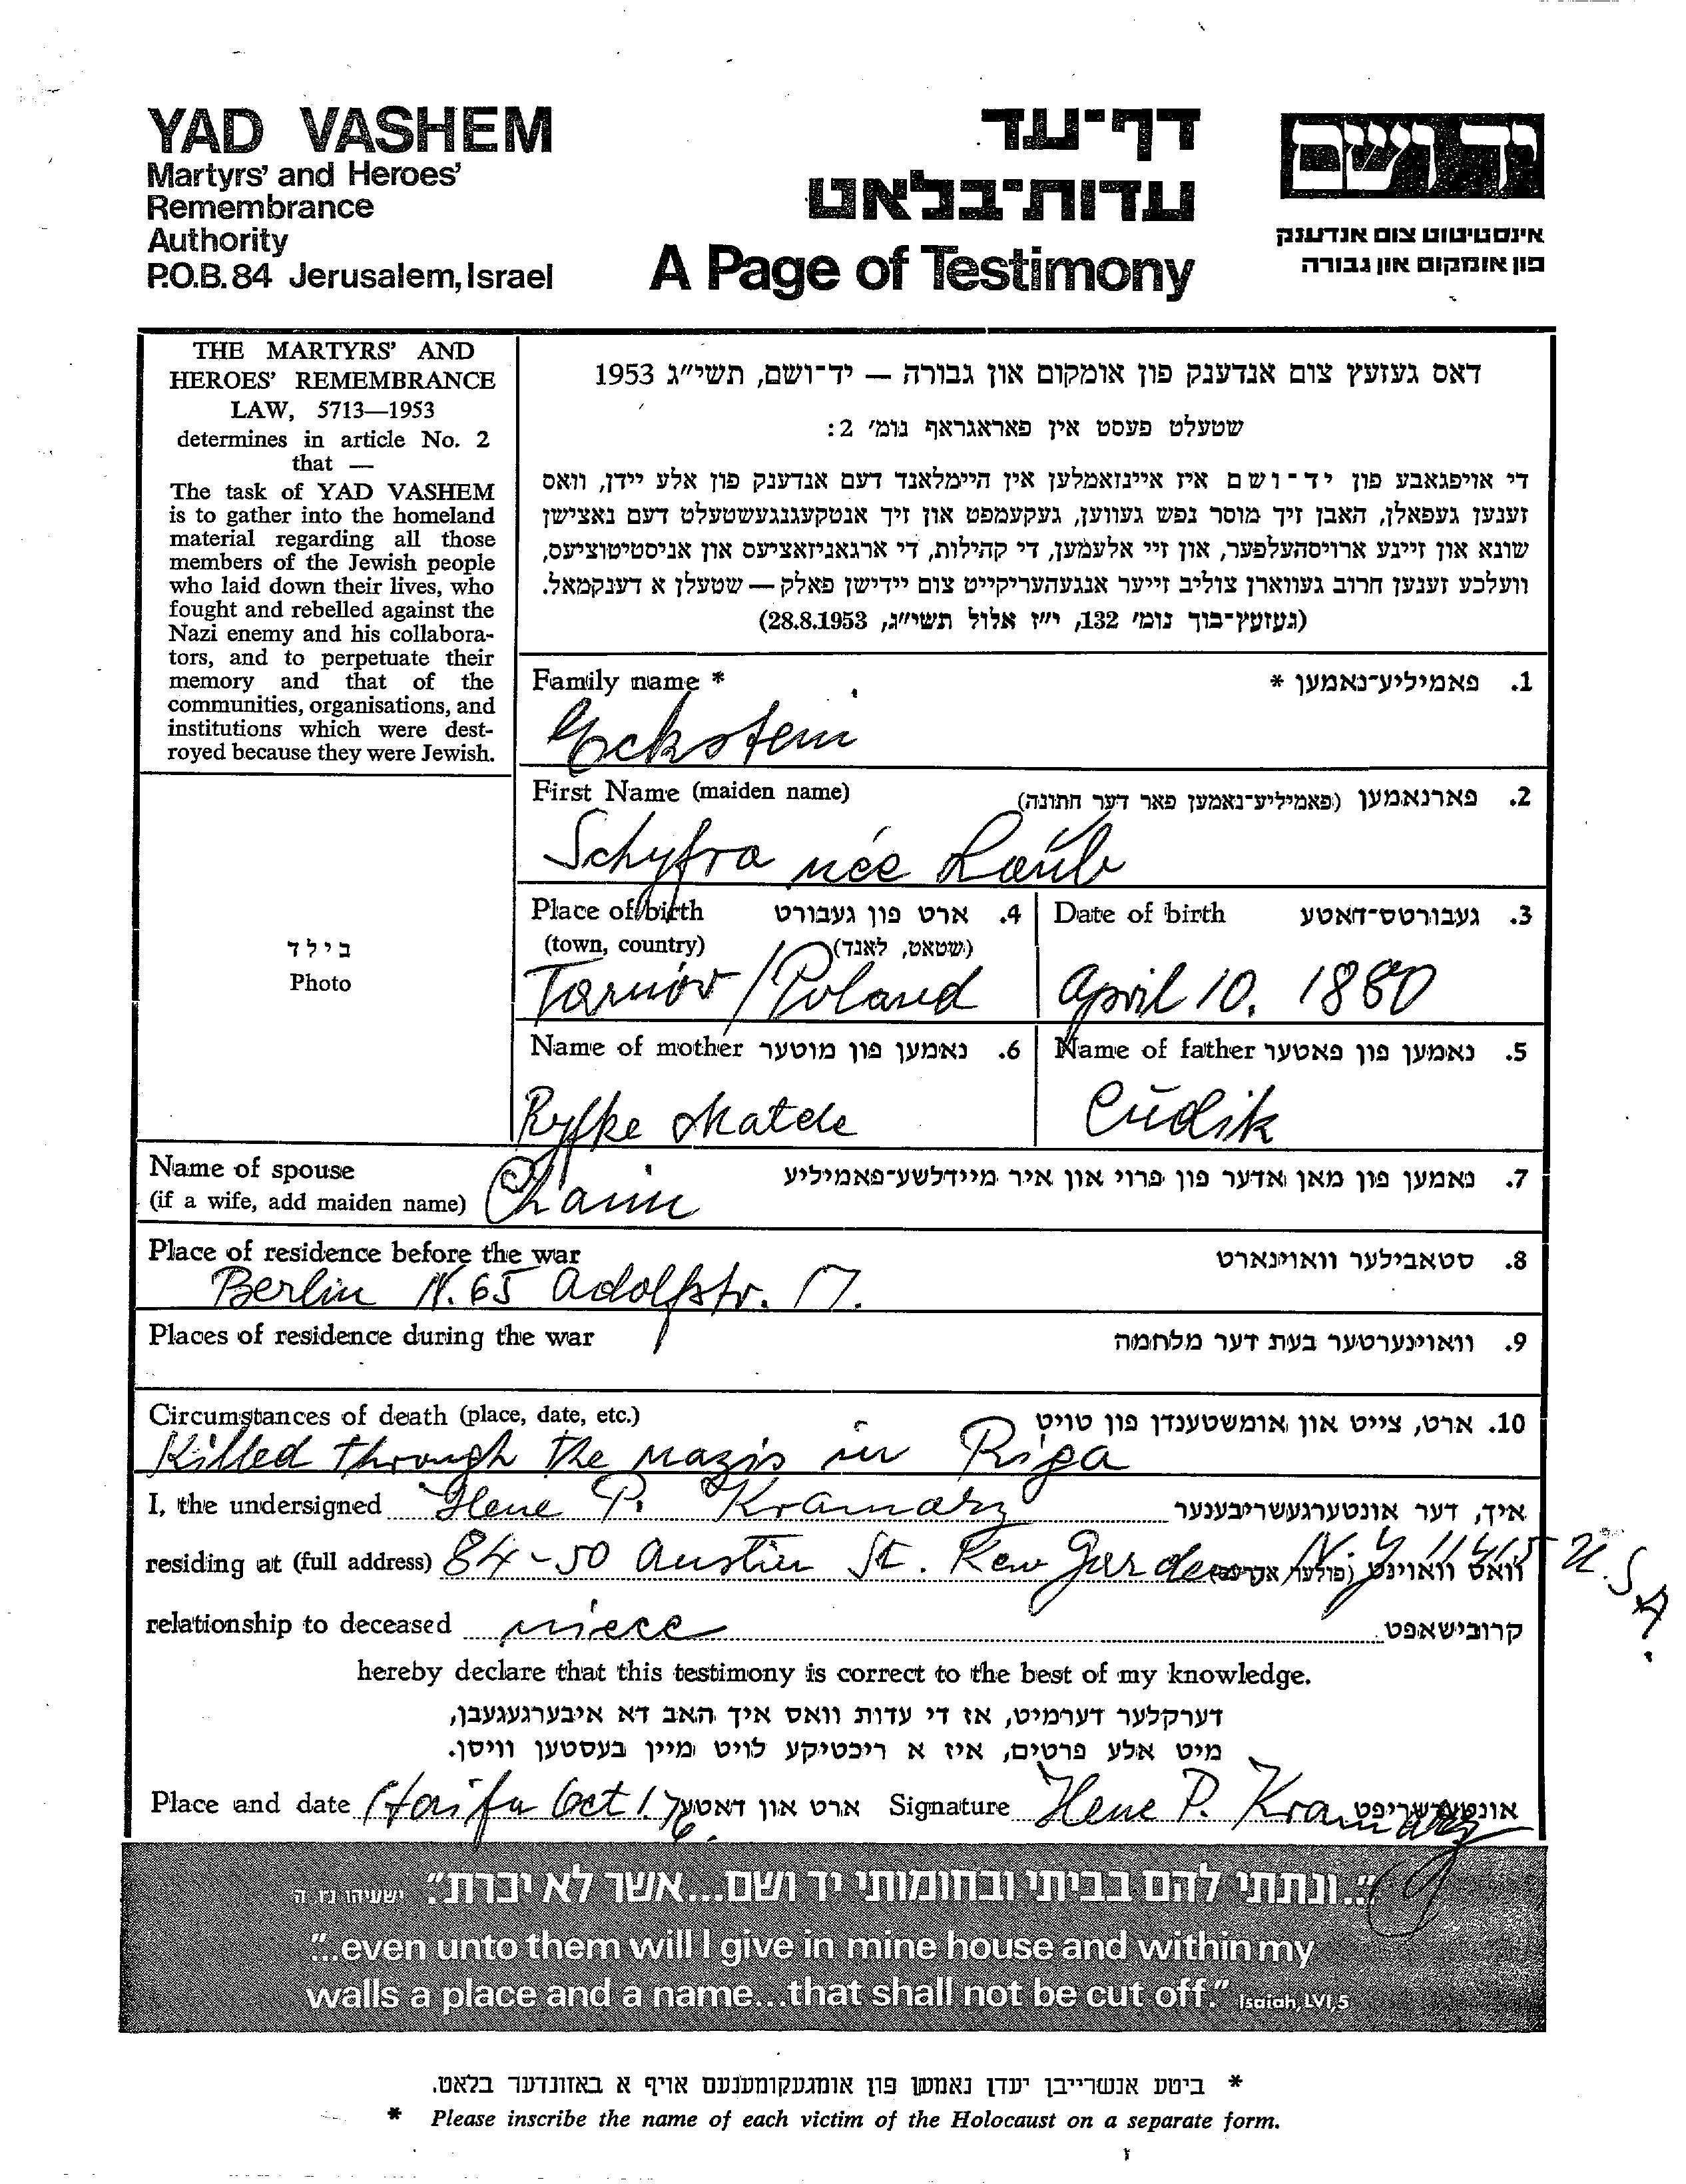 YAD VASHEM
Martyrs' and Heroes'
Remembrance
Authority
P.O.B. 84 Jerusalem, Israel
דף-עד
עדות-בלאט
A Page of Testimony
יד ושם
אינסטיטוט צום אנדענק
פון אומקום און גבורה
THE MARTYRS' AND
HEROES' REMEMBRANCE
LAW, 5713—1953
determines in article No. 2
that —
The task of YAD VASHEM
is to gather into the homeland
material regarding all those
members of the Jewish people
who laid down their lives, who
fought and rebelled against the
Nazi enemy and his collabora-
tors, and to perpetuate their
memory and that of the
communities, organisations, and
institutions which were dest-
royed because they were Jewish.
בילד
Photo
דאס געזעץ צום אנדענק פון אומקום און גבורה — יד-ושם, תשי"ג 1953
שטעלט פעסט אין פאראגראף נומ' 2:
די אויפגאבע פון יד-ושם איז איינזאמלען אין היימלאנד דעם אנדענק פון אלע יידן, וואס
זענען געפאלן, האבן זיך מוסר נפש געווען, געקעמפט און זיך אנטקעגנגעשטעלט דעם נאצישן
שונא און זיינע ארויסהעלפער, און זיי אלעמען, די קהילות, די ארגאניזאציעס און אניסטיטוציעס,
וועלכע זענען חרוב געווארן צוליב זייער אנגעהעריקייט צום יידישן פאלק — שטעלן א דענקמאל.
(געזעץ-בוך נומ' 132, י"ז אלול תשי"ג, 28.8.1953)
Family name * פאמיליע-נאמען * .1
Eckstein
First Name (maiden name) פארנאמען (פאמיליע-נאמען פאר דער חתונה) .2
Schyfra née Laŭb
Place of birth ארט פון געבורט .4
(town, country) (שטאט, לאנד)
Tarnów / Poland
Date of birth געבורטס-דאטע .3
April 10. 1880
Name of mother נאמען פון מוטער .6
Ryfke Matele
Name of father נאמען פון פאטער .5
Cŭdik
Name of spouse נאמען פון מאן אדער פון פרוי און איר מיידלשע-פאמיליע .7
(if a wife, add maiden name) Chaim
Place of residence before the war סטאבילער וואוינארט .8
Berlin N. 65 Adolfstr. 17.
Places of residence during the war וואוינערטער בעת דער מלחמה .9
Circumstances of death (place, date, etc.) ארט, צייט און אומשטענדן פון טויט .10
Killed through the nazis in Riga
I, the undersigned Ilene P. Kramarz איך, דער אונטערגעשריבענער
residing at (full address) 84-50 Austin St. Kew Gardens N.Y. 11415 U.S.A. וואס וואוינט (פולער אדרעס)
relationship to deceased niece קרובישאפט
hereby declare that this testimony is correct to the best of my knowledge.
דערקלער דערמיט, אז די עדות וואס איך האב דא איבערגעגעבן,
מיט אלע פרטים, איז א ריכטיקע לויט מיין בעסטען וויסן.
Place and date Haifa Oct 1. 76. ארט און דאטע Signature Ilene P. Kramarz אונטערשריפט
"..ונתתי להם בביתי ובחומותי יד ושם...אשר לא יכרת". ישעיהו נ"ו ה
"...even unto them will I give in mine house and within my
walls a place and a name...that shall not be cut off." Isaiah, LVI,5
* ביטע אנשרייבן יעדן נאמען פון אומגעקומענעם אויף א באזונדער בלאט.
* Please inscribe the name of each victim of the Holocaust on a separate form.